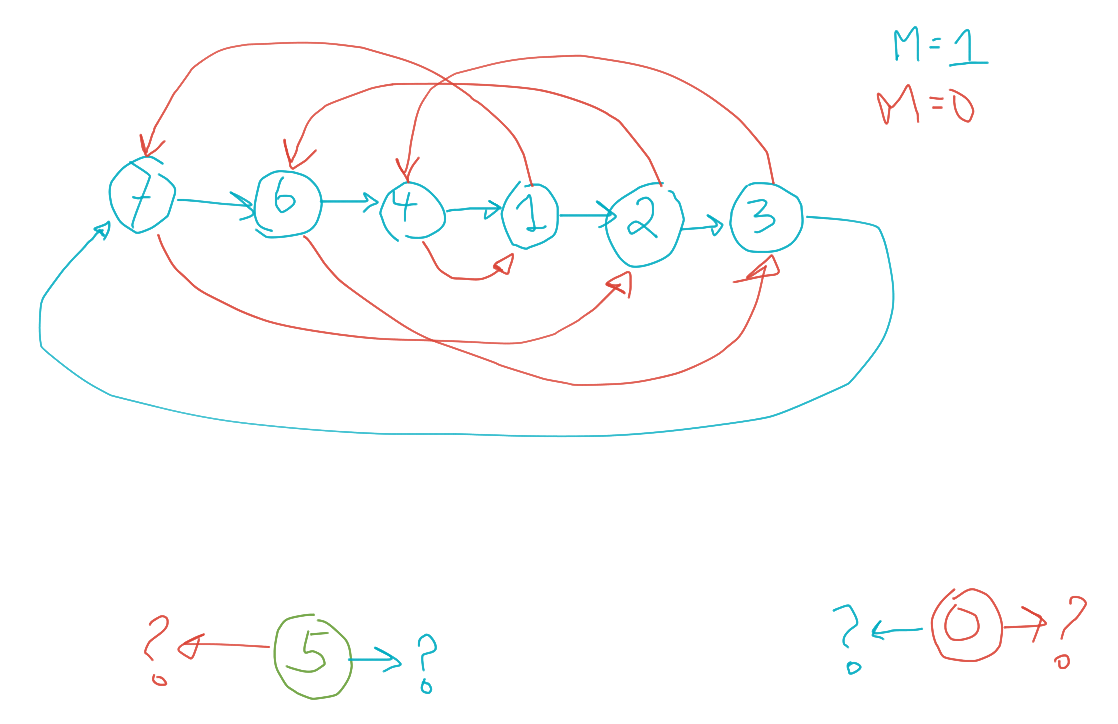 M=1
M=0
7 6 4 1 2 3
? 5 ? ? 0 ?